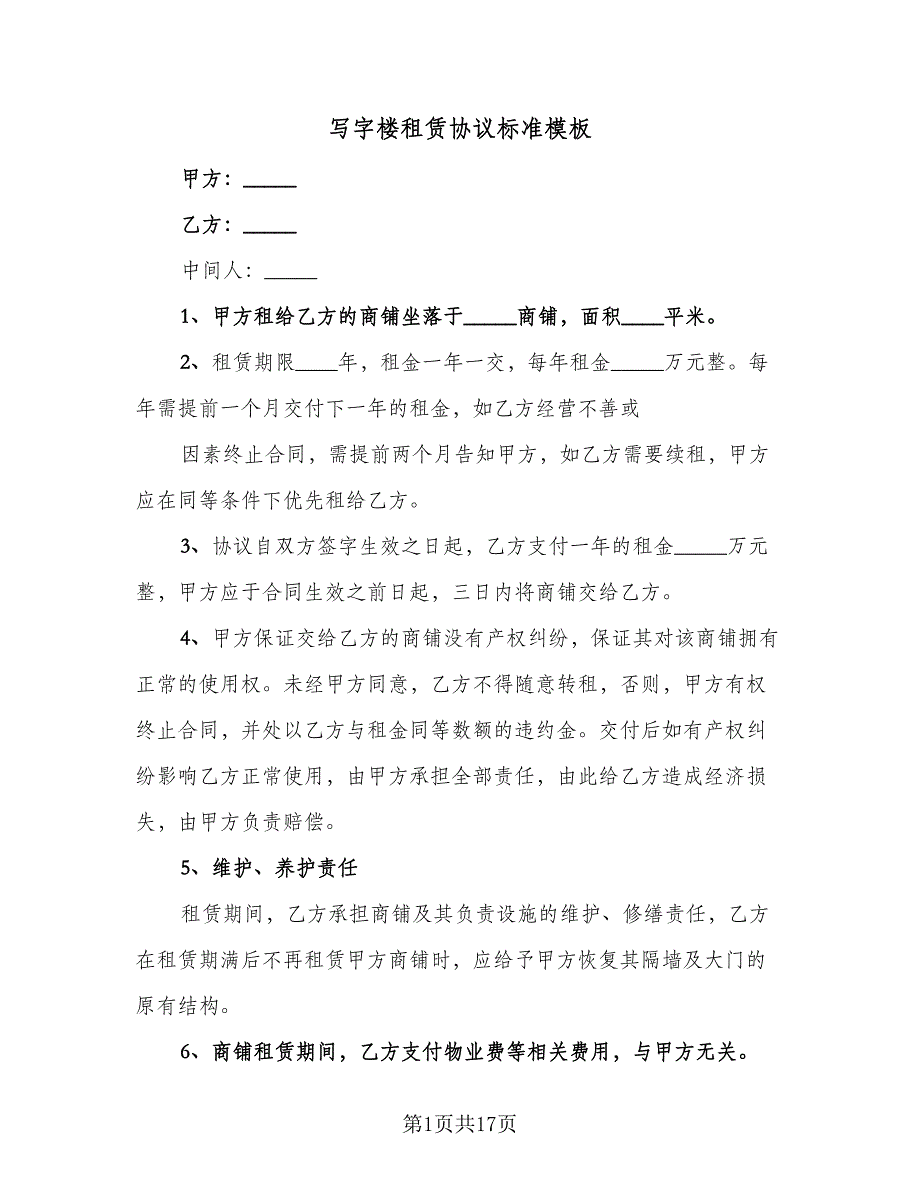 写字楼租赁协议标准模板
甲方：_____
乙方：_____
中间人：_____
1、甲方租给乙方的商铺坐落于_____商铺，面积____平米。
2、租赁期限____年，租金一年一交，每年租金_____万元整。每
年需提前一个月交付下一年的租金，如乙方经营不善或
因素终止合同，需提前两个月告知甲方，如乙方需要续租，甲方
应在同等条件下优先租给乙方。
3、协议自双方签字生效之日起，乙方支付一年的租金_____万元
整，甲方应于合同生效之前日起，三日内将商铺交给乙方。
4、甲方保证交给乙方的商铺没有产权纠纷，保证其对该商铺拥有
正常的使用权。未经甲方同意，乙方不得随意转租，否则，甲方有权
终止合同，并处以乙方与租金同等数额的违约金。交付后如有产权纠
纷影响乙方正常使用，由甲方承担全部责任，由此给乙方造成经济损
失，由甲方负责赔偿。
5、维护、养护责任
租赁期间，乙方承担商铺及其负责设施的维护、修缮责任，乙方
在租赁期满后不再租赁甲方商铺时，应给予甲方恢复其隔墙及大门的
原有结构。
6、商铺租赁期间，乙方支付物业费等相关费用，与甲方无关。
第1页共17页